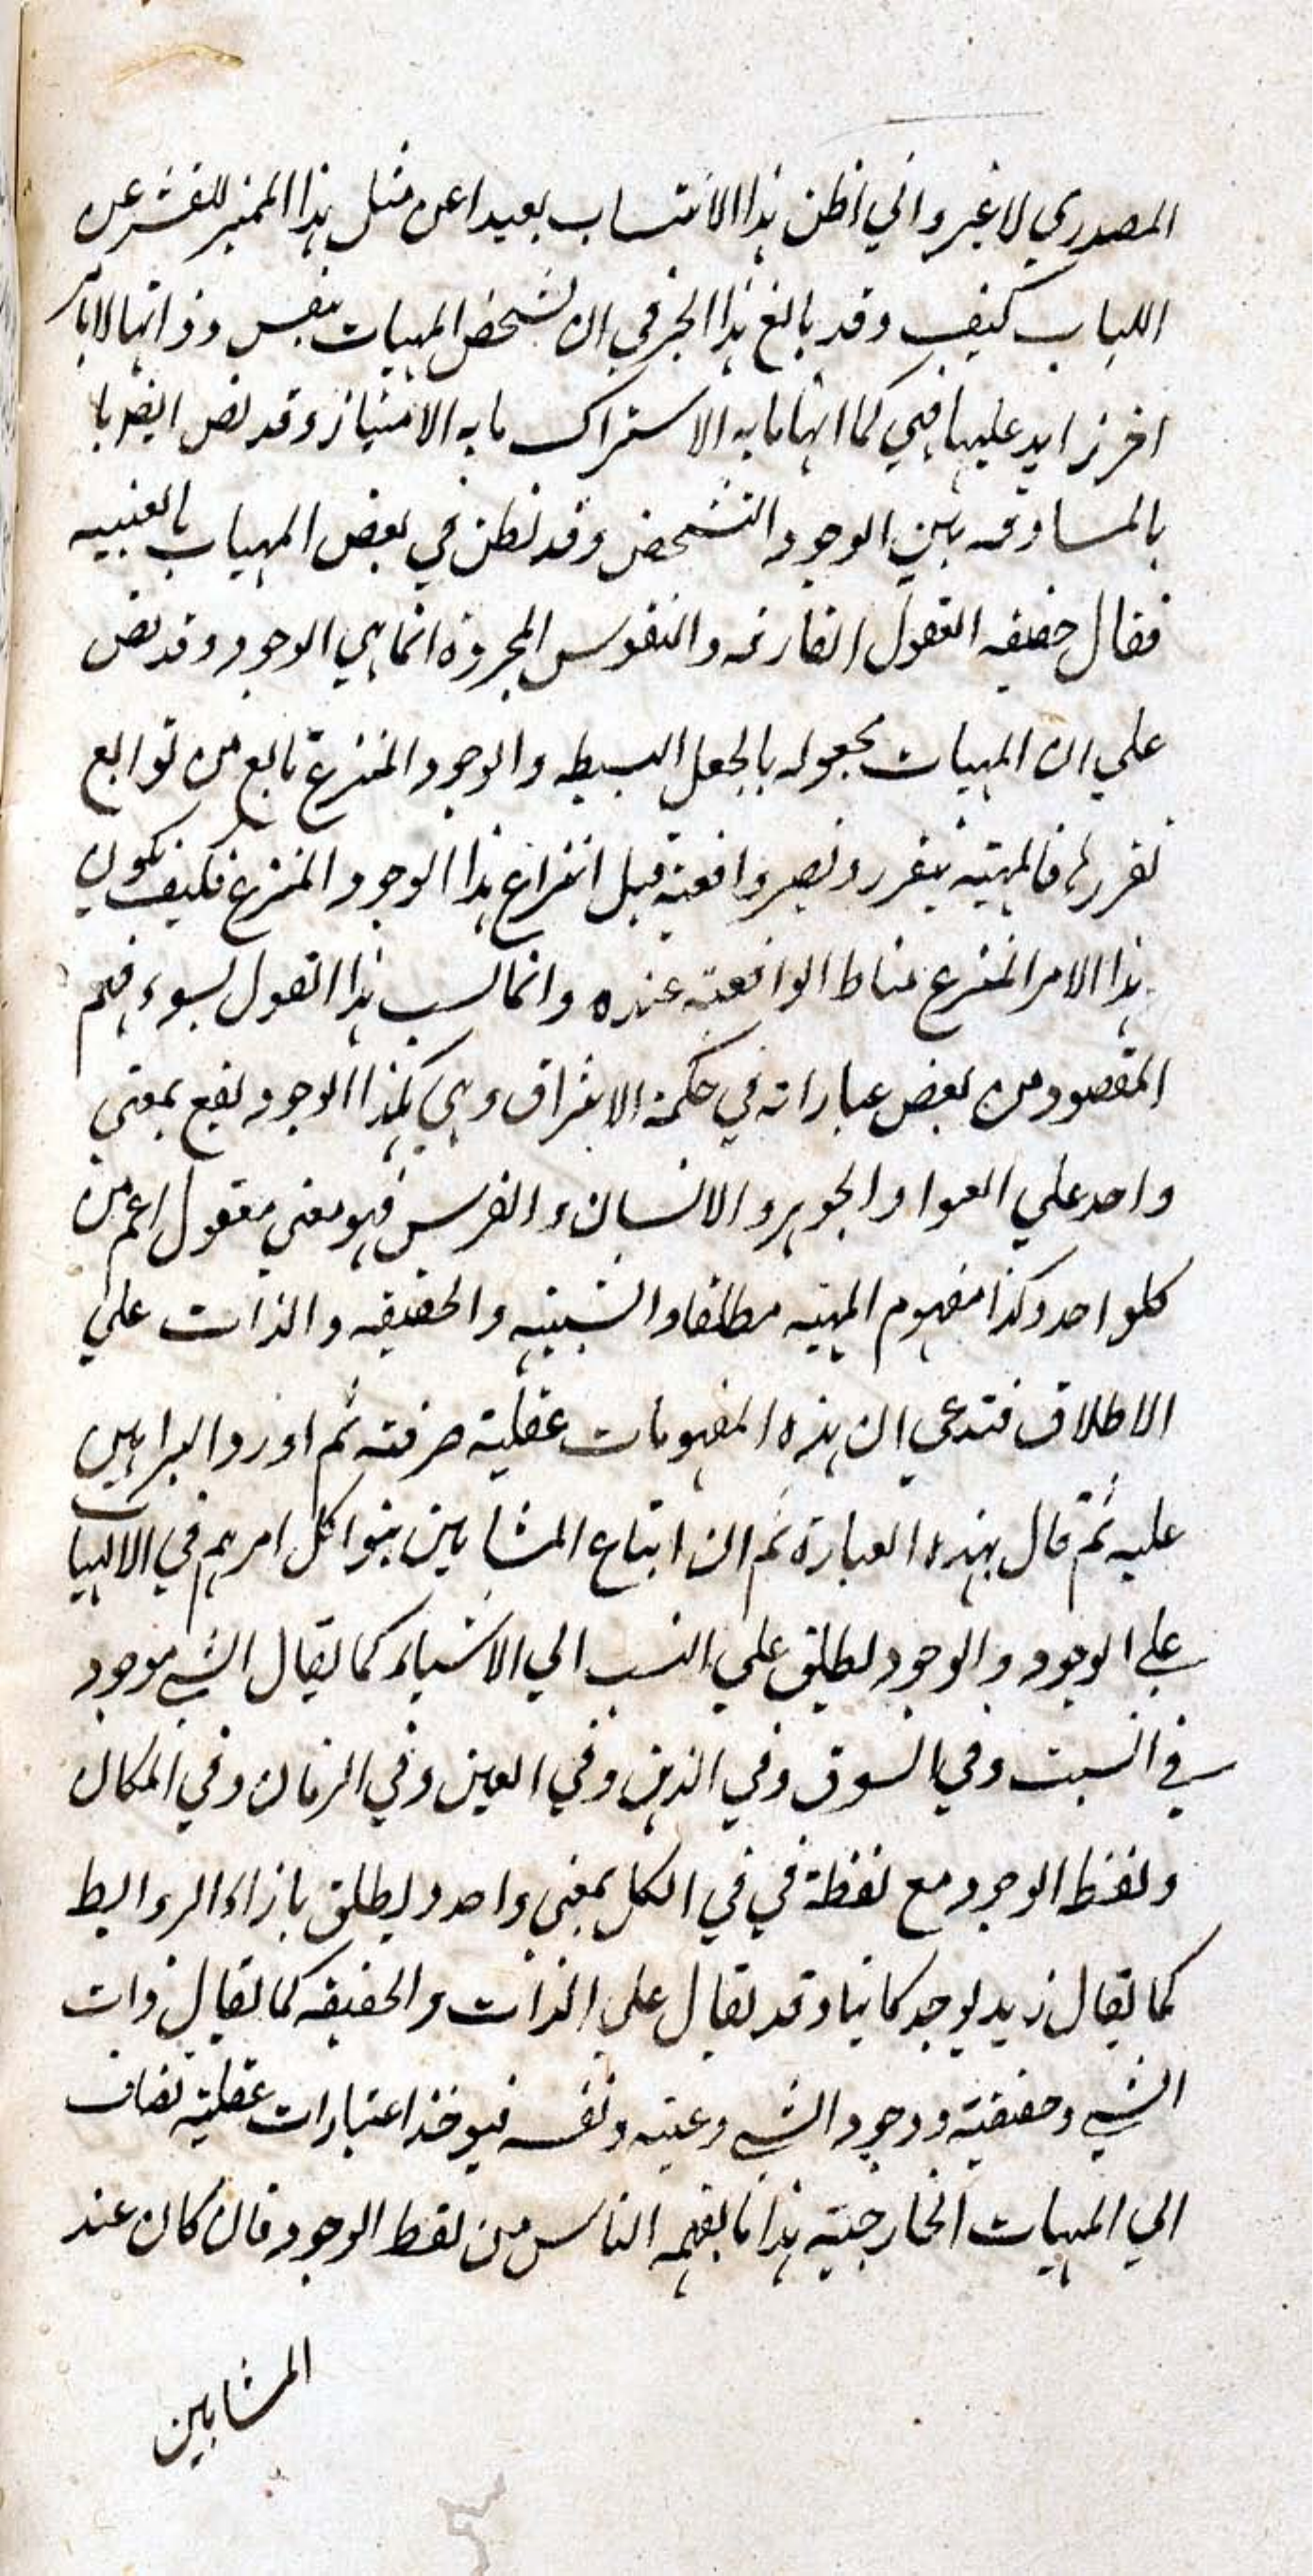 المصدري لا غير واني اظن هذا الانتساب بعيدا عن مثل هذا المميز للقشر عن
اللباب كيف وقد بالغ هذا الحبر في ان تشخص المهيات بنفس ذواتها لا بامر
اخر زايد عليها فهي كما انها مابه الاشتراك مابه الامتياز وقد نص ايضا با
بالمساوقه بين الوجود التشخص وقد نطن في بعض المهيات بالعينيه
فقال حقيقه العقول الفارقه والنفوس المجردة انما هي الوجود وقد نص
علي ان المهيات مجعوله بالجعل البسيطه والوجود المنتزع تابع من توابع
تقررها فالمهيته يتقرر ويصير واقعية قبل انتزاع هذا الوجود المنتزع فكيف يكون
هذا الامر المنتزع مناط الواقعيته عنده وانما نسب هذا القول لسوء فهم
المقصود من بعض عباراته في حكمة الاشراق وهي هكذا الوجود يقع بمعني
واحد علي السواد والجوهر والانسان والفرس فهو معني معقول اعم من
كلواحد وكذا مفهوم المهيته مطلقا والشيئيه والحقيقه والذات علي
الاطلاق فتدعي ان هذه المفهومات عقلية صرفته ثم اورد البراهين
عليه ثم قال بهذه العبارة ثم ان اتباع المشايين بنوا كل امرهم في الالهيات
علي الوجود والوجود يطلق علي النسب الي الاشياء كما يقال الشي موجود
في البيت وفي السوق وفي الذهن وفي العين وفي الزمان وفي المكان
ولفظ الوجود مع لفظة في في الكل بمعني واحد ويطلق بازاء الروابط
كما يقال زيد يوجد كاتبا وقد يقال علي الذات والحقيقه كما يقال ذات
الشي وحقيقته ووجود الشي وعينه ونفسه فيوخذ اعتبارات عقليته تضاف
الي المهيات الخارجيته هذا ما يفهمه الناس من لفظ الوجود فان كان عند
المشايين